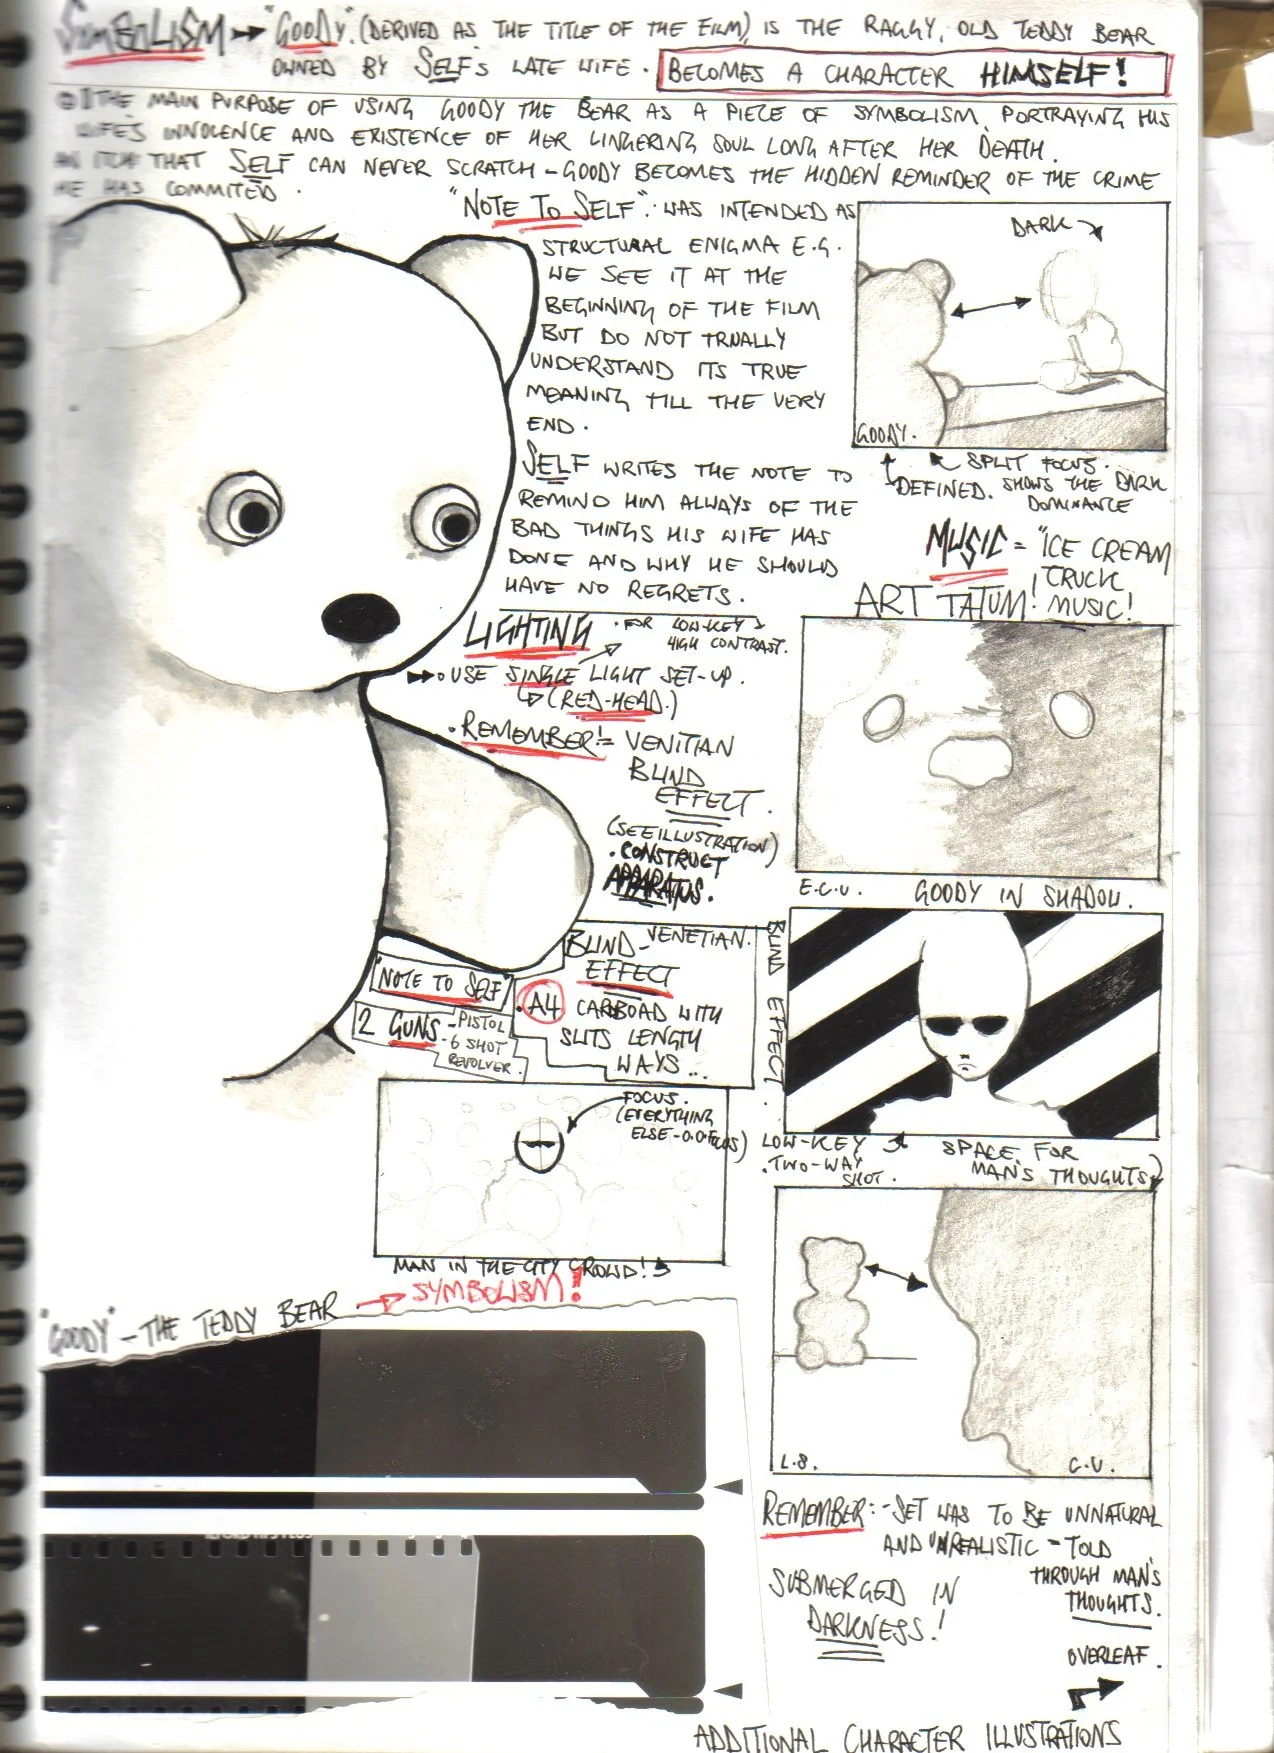 SYMBOLISM → "GOODY". (DERIVED AS THE TITLE OF THE FILM) IS THE RAGGY, OLD TEDDY BEAR
OWNED BY SELF'S LATE WIFE.
BECOMES A CHARACTER HIMSELF!
THE MAIN PURPOSE OF USING GOODY THE BEAR AS A PIECE OF SYMBOLISM, PORTRAYING HIS
WIFE'S INNOCENCE AND EXISTENCE OF HER LINGERING SOUL LONG AFTER HER DEATH.
AN ITCH THAT SELF CAN NEVER SCRATCH - GOODY BECOMES THE HIDDEN REMINDER OF THE CRIME
HE HAS COMMITED.
"NOTE TO SELF". WAS INTENDED AS
STRUCTURAL ENIGMA E.G.
WE SEE IT AT THE
BEGINNING OF THE FILM
BUT DO NOT TRUALLY
UNDERSTAND ITS TRUE
MEANING TILL THE VERY
END.
SELF WRITES THE NOTE TO
REMIND HIM ALWAYS OF THE
BAD THINGS HIS WIFE HAS
DONE AND WHY HE SHOULD
HAVE NO REGRETS.
DARK
GOODY.
SPLIT FOCUS.
DEFINED. SHOWS THE DARK
DOMINANCE
MUSIC = "ICE CREAM
TRUCK
MUSIC!
ART TATUM!
LIGHTING
• FOR LOW-KEY
HIGH CONTRAST.
• USE SINGLE LIGHT SET-UP.
(RED-HEAD.)
• REMEMBER!= VENITIAN
BLIND
EFFECT.
(SEE ILLUSTRATION)
• CONSTRUCT
APPARATUS.
E.C.U. GOODY IN SHADOW.
BLIND - VENETIAN.
EFFECT
• A4 CARBOAD WITH
SLITS LENGTH
WAYS...
"NOTE TO SELF"
2 GUNS - PISTOL
- 6 SHOT
REVOLVER.
BLIND EFFECT.
LOW-KEY
• TWO-WAY
SHOT.
SPACE FOR
MAN'S THOUGHTS
FOCUS.
(EVERYTHING
ELSE - O.O.FOCUS)
MAN IN THE CITY CROWD!
SYMBOLISM!
"GOODY" - THE TEDDY BEAR
L.S.
C.U.
REMEMBER:- SET WAS TO BE UNNATURAL
AND UNREALISTIC - TOLD
THROUGH MAN'S
THOUGHTS.
SUBMERGED IN
DARKNESS!
OVERLEAF.
ADDITIONAL CHARACTER ILLUSTRATIONS